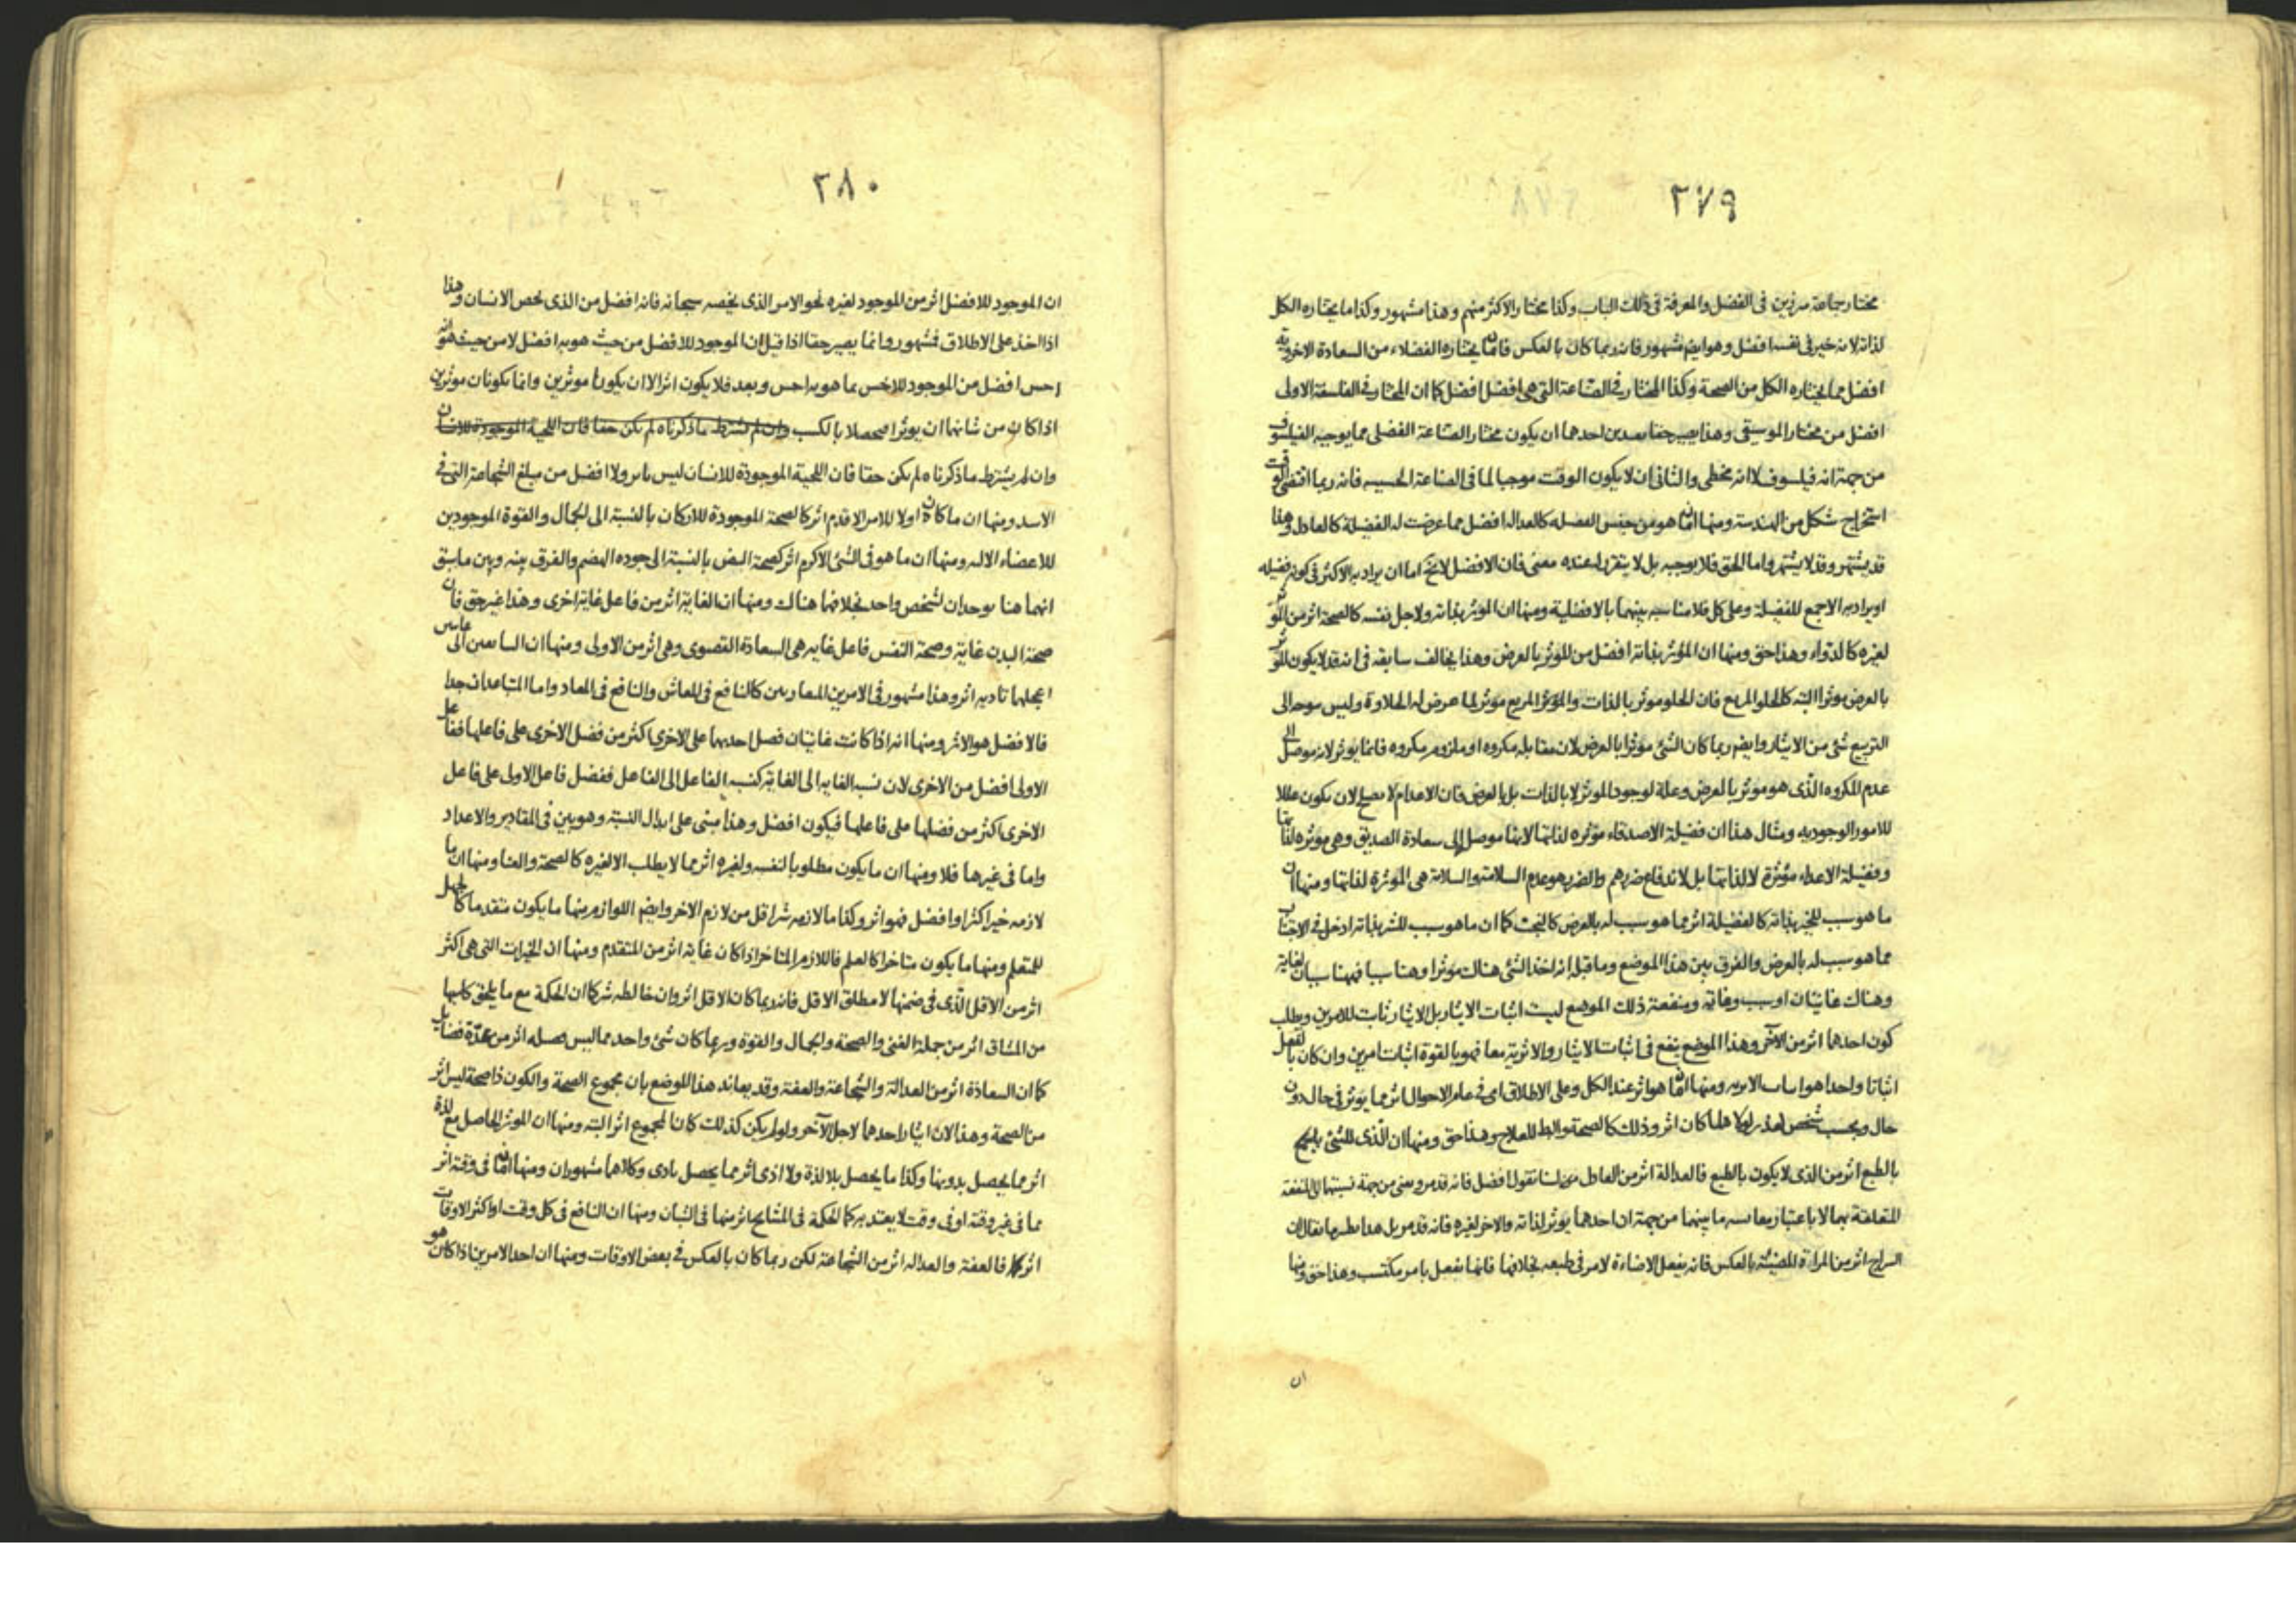 ٢٧٩
مختار جماعة مبرزين فى الفضل والمعرفة فى ذلك الباب وكذا مختار الاكثر منهم وهذا مشهور وكذا ما يختاره الكل
لذاته لانه خير فى نفسه افضل وهو ايضم مشهور فانه ربما كان بالعكس فان ما يختاره الفضلاء من السعادة الاخروية
افضل مما يختاره الكل من الصحة وكذا المختار فى الصناعة التى هى افضل افضل كما ان المختار فى الفلسفة الاولى
افضل من مختار الموسيقى وهذا يصير حقا بعدين احدهما ان يكون مختار الصناعة الفضلى مما يوجبه الفيلسوف
من جهة انه فيلسوف لا انه مخطى والثانى ان لا يكون الوقت موجبا لما فى الصناعة الخسيسه فانه ربما اقتضى الوقت
استخراج شكل من الهندسة ومنها ان ما هو من جنس الفضيله كالعداله افضل مما عرضت له الفضيلة كالعادل وهذا
قد يشتهر وقد لا يشتهر واما الحق فلا يوجبه بل لا يتقرر له عنده معنى فان الافضل لا يخ اما ان يراد به الاكثر فى كونه فضيله
او يراد به الاجمع للفضيلة وعلى كل فلا مناسبه بينهما بالافضلية ومنها ان الموثر بذاته ولاجل نفسه كالصحة اثر من الموثر
لغيره كالدواء وهذا حق ومنها ان المؤثر بذاته افضل من الموثر بالعرض وهذا يخالف سابقه فى انه قد لا يكون الموثر
بالعرض موثرا البته كالحلو المربع فان الحلو موثر بالذات والمؤثر المربع موثر لما عرض له الحلاوة وليس يتوجه الى
التربيع شئ من الايثار وايضم ربما كان الشئ موثرا بالعرض لان مقابله مكروه او ملزوم مكروه فانما يوثر لانه موصل الى
عدم المكروه الذى هو موثر بالعرض وعلة لوجود الموثر لا بالذات بل بالعرض فان الاعدام لا يصلح لان يكون عللا
للامور الوجوديه ومثال هذا ان فضيلة الاصدقاء مؤثره لذاتها لانها موصل الى سعادة الصديق وهى موثره لذاتها
وفضيلة الاعداء مؤثرة لا لذاتها بل لاندفاع ضررهم والضرر هو عدم السلامة والسلامة هى الموثرة لذاتها ومنها ان
ما هو سبب للخير بذاته كالفضيلة اثر مما هو سبب له بالعرض كالبخت كما ان ما هو سبب للشر بذاته ادخل فى الاجتناب
مما هو سبب له بالعرض والفرق بين هذا الموضع وما قبله انه اخذ الشئ هناك موثرا وهنا سببا فههنا سببان لغاية
وهناك غايتان او سبب وغاية ومنفعة ذلك الموضع ليست اثبات الايثار بل الايثار ثابت للامرين ويطلب
كون احدهما اثر من الآخر وهذا الموضع ينفع فى اثبات الايثار والاثرية معا فهو بالقوة اثبات امرين وان كان بالفعل
اثباتا واحدا هو اثبات الاثريه ومنها ان ما هو اثر عند الكل وعلى الاطلاق اى فى عامة الاحوال اثر مما يوثر فى حال دون
حال وبحسب شخص كان اثر وذلك كالصحة والبط للعلاج وهذا حق ومنها ان الذى للشئ
بالطبع اثر من الذى لا يكون بالطبع فالعدالة اثر من العادل لسنا نقول افضل فانه قد مر ونعنى من جهة نسبتهما الى المنفعة
المتعلقة بهما لا باعتبار ما بينهما من جهة ان احدهما يوثر لذاته والاخر لغيره فانه قد مر بل هذا نظير ما يقال ان
السراج اثر من المراة المضيئة بالعكس فانه يفعل الاضاءة لامر فى طبعه بخلافها فانها تفعل بامر مكتسب وهذا حق ومنها
ان
٢٨٠
ان الموجود للافضل اثر من الموجود لغيره نحو الامر الذى يخصه سبحانه فانه افضل من الذى يخص الانسان وهذا
اذا اخذ على الاطلاق فمشهور وانما يصير حقا اذا قيل ان الموجود للافضل من حيث هو به افضل لا من حيث هو به
اخس افضل من الموجود للاخس بما هو به اخس وبعد فلا يكون اثر الا ان يكونا موثرين وانما يكونان موثرين
اذا كان من شانهما ان يوثرا فيحصلا بالكسب وان لم تشترط ما ذكرناه لم يكن حقا فان اللحية الموجودة للانسان
وان لم يشترط ما ذكرناه لم يكن حقا فان اللحية الموجودة للانسان ليس باثر ولا افضل من مبلغ الشجاعة التى فى
الاسد ومنها ان ما كان اولا للامر الاقدم اثر كالصحة الموجودة للاركان بالنسبة الى الجمال والقوة الموجودين
للاعضاء الاليه ومنها ان ما هو فى الشئ الاكرم اثر كصحة النبض بالنسبة الى جوده الهضم والفرق بينه وبين ما سبق
انهما هنا يوجدان لشخص واحد بخلافهما هناك ومنها ان الغاية اثر من فاعل غاية اخرى وهذا غير حق فان
صحة البدن غاية وصحة النفس فاعل غايه هى السعادة القصوى وهى اثر من الاولى ومنها ان السابقين الى غايتين
اعجلهما تاديه اثر وهذا مشهور فى الامرين المتقاربين كالنافع فى المعاش والنافع فى المعاد واما المتباعدان جدا
فالافضل هو الاثر ومنها انه اذا كانت غايتان فضل احديهما على الاخرى اكثر من فضل الاخرى على فاعلها ففاعل
الاولى افضل من الاخرى لان نسبة الغايه الى الغاية كنسبة الفاعل الى الفاعل ففضل فاعل الاولى على فاعل
الاخرى اكثر من فضلها على فاعلها فيكون افضل وهذا مبنى على ابدال النسبة وهو بين فى المقادير والاعداد
واما فى غيرها فلا ومنها ان ما يكون مطلوبا لنفسه ولغيره اثر مما لا يطلب الا لغيره كالصحة والغنا ومنها ان ما
لازمه خير اكثر او افضل فهو اثر وكذا ما لازمه شر اقل من لازم الاخر وايضم اللوازم منها ما يكون متقدما كالجهل
للمتعلم ومنها ما يكون متاخرا كالعلم فاللازم المتاخر اذا كان غاية اثر من المتقدم ومنها ان الخيرات التى هى اكثر
اثر من الاقل الذى فى ضمنها لا مطلق الاقل فانه ربما كان الاقل اثر وان خالطه شر كما ان الحكمة مع ما يلحق كاسبها
من المشاق اثر من جملة الغنى والصحة والجمال والقوة وربما كان شئ واحد مما ليس فضيله اثر من عدة فضايل
كما ان السعادة اثر من العدالة والشجاعة والعفة وقد يعاند هذا الموضع بان مجموع الصحة والكون ذا صحة ليس اثر
من الصحة وهذا لان ايثار احدهما لاجل الآخر ولو لم يكن كذلك كان المجموع اثر البته ومنها ان الموثر الحاصل مع لذة
اثر مما يحصل بدونها وكذا ما يحصل بلا لذة ولا اذى اثر مما يحصل باذى وكلاهما مشهوران ومنها ان ما فى وقته اثر
مما فى غير وقته او فى وقت لا يعتد به كالحكمة فى المشايخ اثر منها فى الشبان ومنها ان النافع فى كل وقت او اكثر الاوقات
اثر فالعفة والعداله اثر من الشجاعة لكن ربما كان بالعكس فى بعض الاوقات ومنها ان احد الامرين اذا كان هو